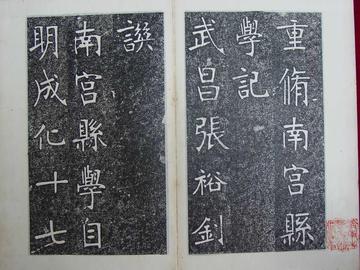 重脩南宮縣
學記
武昌張裕釗
譔
南宮縣學自
明成化十七